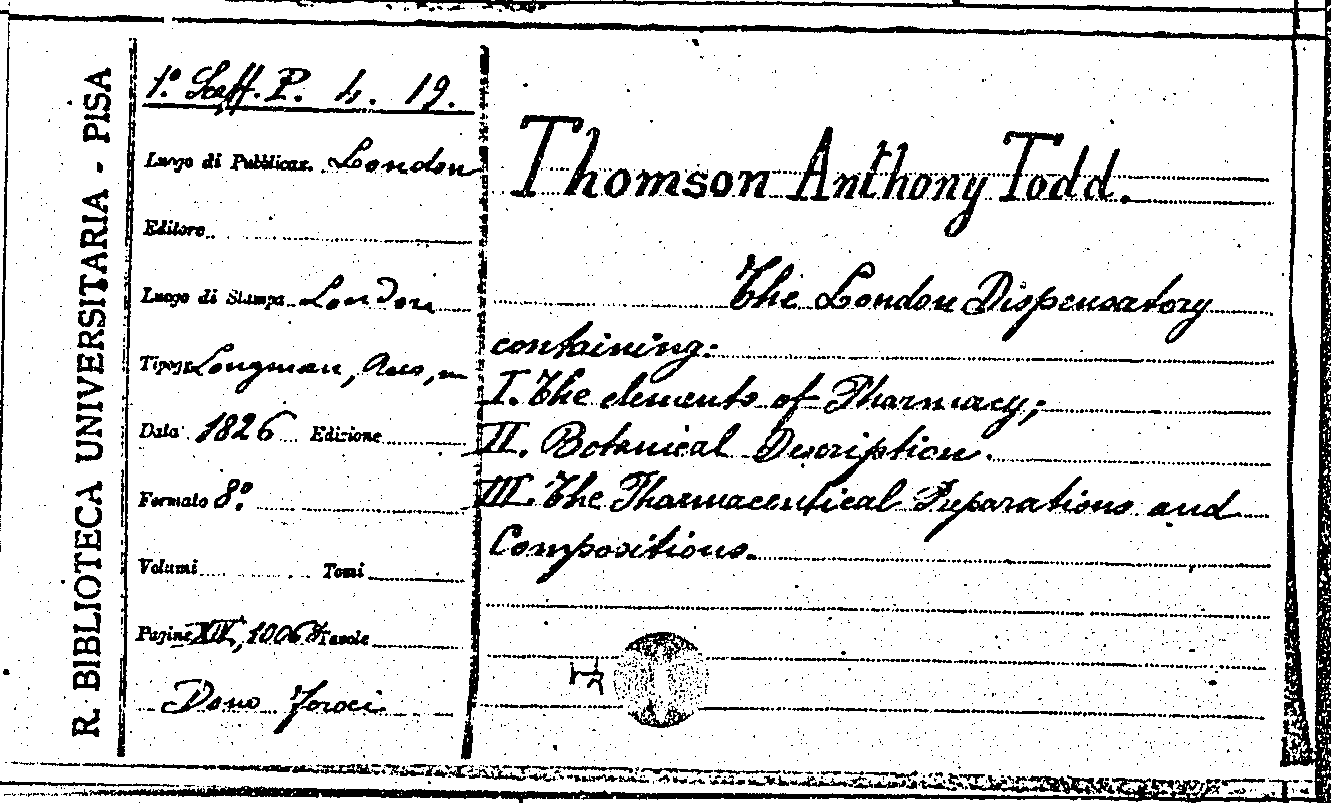 R. BIBLIOTECA UNIVERSITARIA - PISA
1.º Scaff. P. 4. 19.
Luogo di Pubblicaz. London
Editore
Luogo di Stampa London
Tipogr. Longman, Rees,
Data 1826 Edizione
Formato 8º
Volumi Tomi
Pagine XII, 1006 Tavole
Dono
Thomson Anthony Todd.
The London Dispensatory
containing:
I. The elements of Pharmacy;
II. Botanical Description.
III. The Pharmaceutical Preparations and
Compositions.